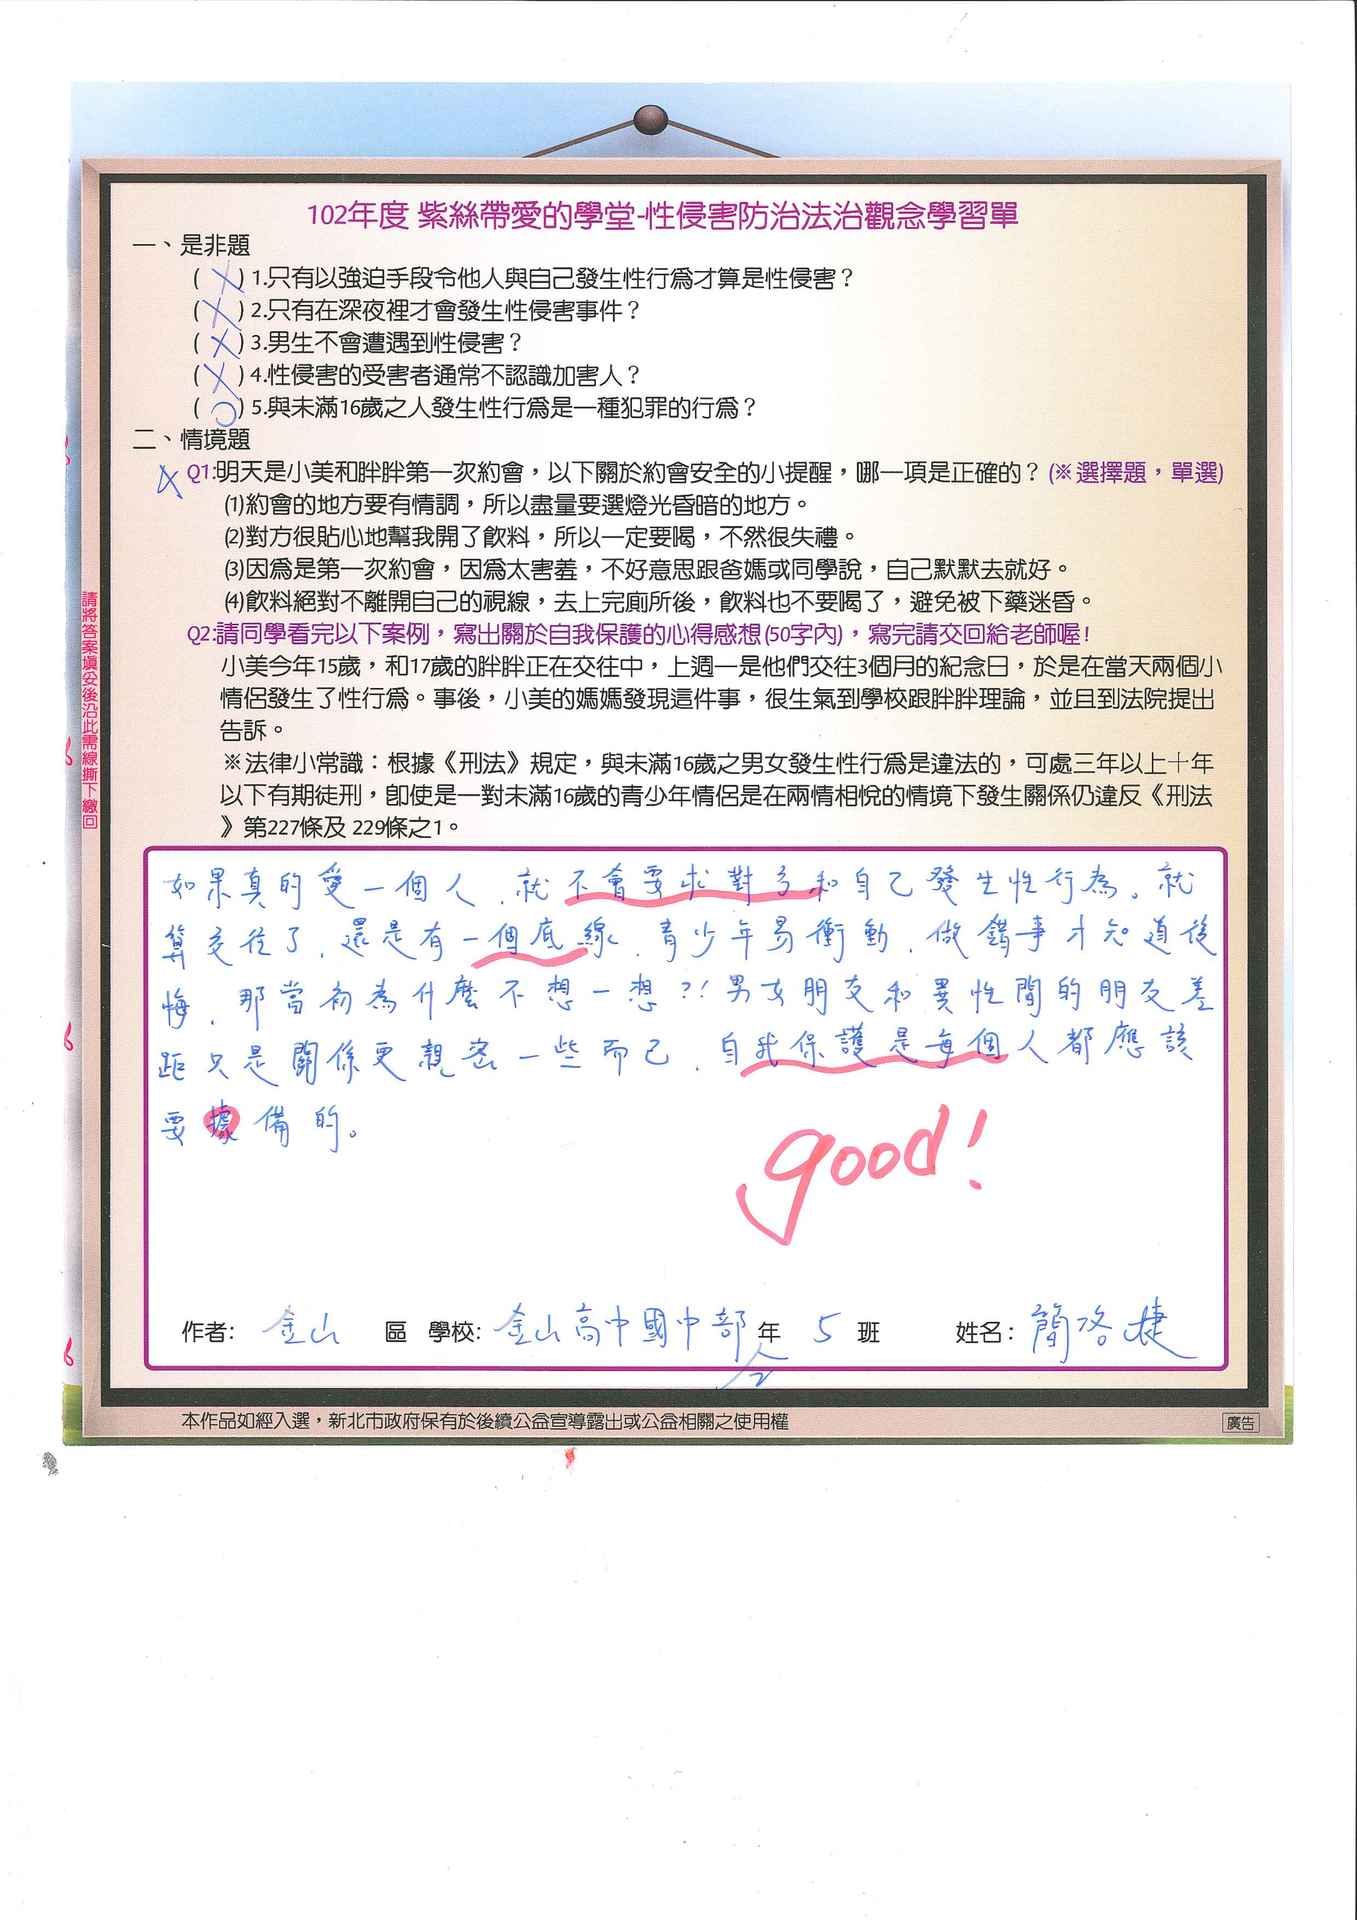 102年度 紫絲帶愛的學堂-性侵害防治法治觀念學習單
一、是非題
( X ) 1.只有以強迫手段令他人與自己發生性行為才算是性侵害？
( X ) 2.只有在深夜裡才會發生性侵害事件？
( X ) 3.男生不會遭遇到性侵害？
( X ) 4.性侵害的受害者通常不認識加害人？
( O ) 5.與未滿16歲之人發生性行為是一種犯罪的行為？
二、情境題
4 Q1:明天是小美和胖胖第一次約會，以下關於約會安全的小提醒，哪一項是正確的？(※選擇題，單選)
(1)約會的地方要有情調，所以盡量要選燈光昏暗的地方。
(2)對方很貼心地幫我開了飲料，所以一定要喝，不然很失禮。
(3)因為是第一次約會，因為太害羞，不好意思跟爸媽或同學說，自己默默去就好。
(4)飲料絕對不離開自己的視線，去上完廁所後，飲料也不要喝了，避免被下藥迷昏。
Q2:請同學看完以下案例，寫出關於自我保護的心得感想(50字內)，寫完請交回給老師喔!
小美今年15歲，和17歲的胖胖正在交往中，上週一是他們交往3個月的紀念日，於是在當天兩個小
情侶發生了性行為。事後，小美的媽媽發現這件事，很生氣到學校跟胖胖理論，並且到法院提出
告訴。
※法律小常識：根據《刑法》規定，與未滿16歲之男女發生性行為是違法的，可處三年以上十年
以下有期徒刑，即使是一對未滿16歲的青少年情侶是在兩情相悅的情境下發生關係仍違反《刑法
》第227條及 229條之1。
請將答案填妥後沿此需線撕下繳回
如果真的愛一個人，就不會要求對方和自己發生性行為。就
算交往了，還是有一個底線，青少年易衝動，做錯事才知道後
悔，那當初為什麼不想一想?!男女朋友和異性間的朋友差
距只是關係更親密一些而已，自我保護是每個人都應該
要據備的。
good!
作者: 金山 區 學校: 金山高中國中部 年 5 班 姓名: 簡洛婕
本作品如經入選，新北市政府保有於後續公益宣導露出或公益相關之使用權
廣告